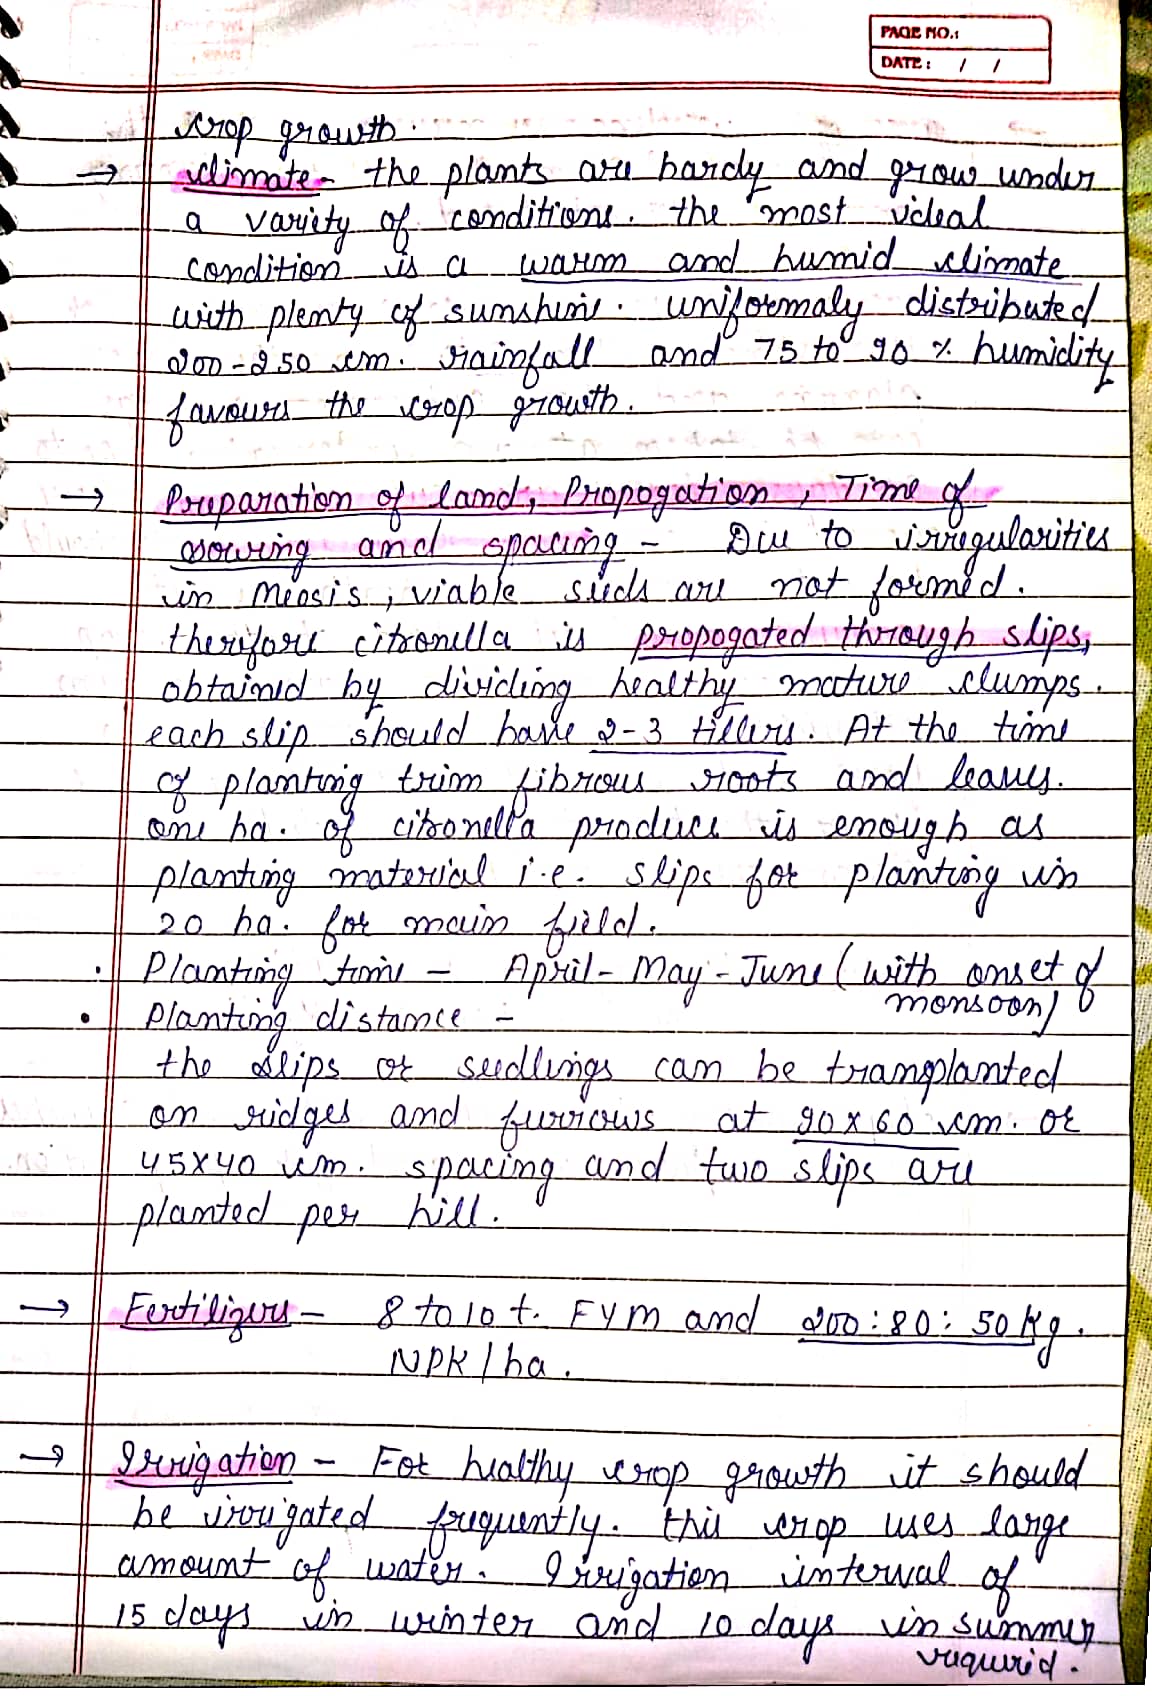 PAGE NO.:
DATE: / /
crop growth.
→ climate- the plants are hardy and grow under
a variety of conditions. the most ideal
condition is a warm and humid climate
with plenty of sunshine. uniformaly distributed
200-250 cm. rainfall and 75 to 90 % humidity
favours the crop growth.
→ Preparation of land, Propogation, Time of
sowing and spacing - Due to irregularities
in meosis, viable seeds are not formed.
therefore citronella is propogated through slips,
obtained by dividing healthy mature clumps.
each slip should have 2-3 tillers. At the time
of planting trim fibrous roots and leaves.
one ha. of citronella produce is enough as
planting material i.e. slips for planting in
20 ha. for main field.
. Planting time - April-May-June (with onset of
monsoon)
• Planting distance -
the slips or seedlings can be transplanted
on ridges and furrows at 90x60 cm. or
45x40 cm. spacing and two slips are
planted per hill.
→ Fertilizers - 8 to 10 t. FYM and 200:80:50 Kg.
NPK/ha.
→ Irrigation - For healthy crop growth it should
be irrigated frequently. this crop uses large
amount of water. Irrigation interval of
15 days in winter and 10 days in summer
required.